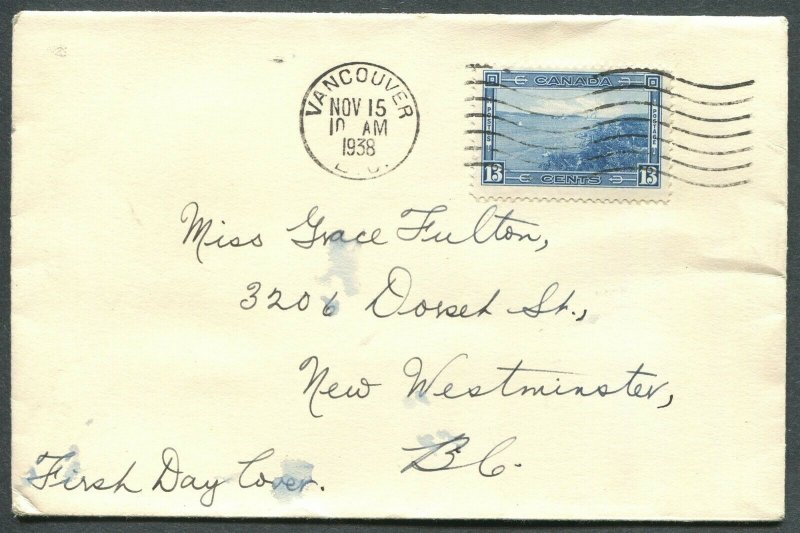 VANCOUVER
NOV 15
10 AM
1938
B.C.
CANADA
POSTES POSTAGE
13 CENTS 13
Miss Grace Fulton,
3206 Dorset St.,
New Westminster,
B.C.
First Day Cover.